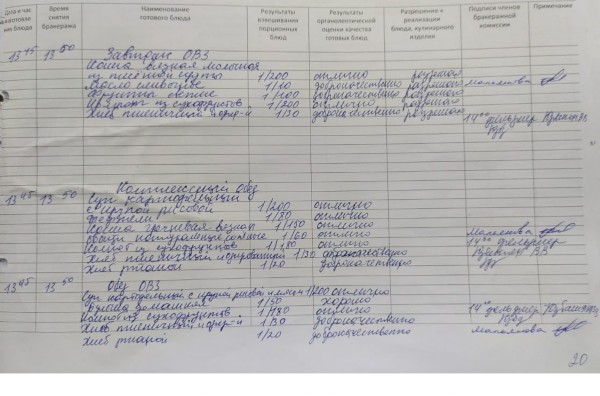 Дата и час изготовления блюда
Время снятия бракеража
Наименование готового блюда
Результаты взвешивания порционных блюд
Результаты органолептической оценки качества готовых блюд
Разрешение к реализации блюда, кулинарного изделия
Подписи членов бракеражной комиссии
Примечание
13 45 13 50 Завтрак ОВЗ
Каша вязкая молочная
из пшённой крупы 1/200 отлично разрешено
Масло сливочное 1/10 доброкачественно разрешено
Фрукты свежие 1/100 доброкачественно разрешено
из сухофруктов 1/200 отлично разрешено
Хлеб пшеничный 1/30 доброкачественно разрешено
14 00 фельдшер
13 45 13 50 Обед
Суп картофельный
с крупой рисовой 1/200 отлично
1/80 отлично
Каша гречневая вязкая 1/150 отлично
Овощи натуральные соленые 1/60 отлично
Компот из сухофруктов 1/180 отлично
Хлеб пшеничный йодированный 1/30 доброкачественно
Хлеб ржаной 1/20 доброкачественно
14 00 фельдшер
13 45 13 50 Обед ОВЗ
Суп картофельный с крупой рисовой 1/200 отлично
домашняя 1/50 хорошо
Компот из сухофруктов 1/180 отлично
Хлеб пшеничный 1/30 доброкачественно
Хлеб ржаной 1/20 доброкачественно
14 00 фельдшер
20